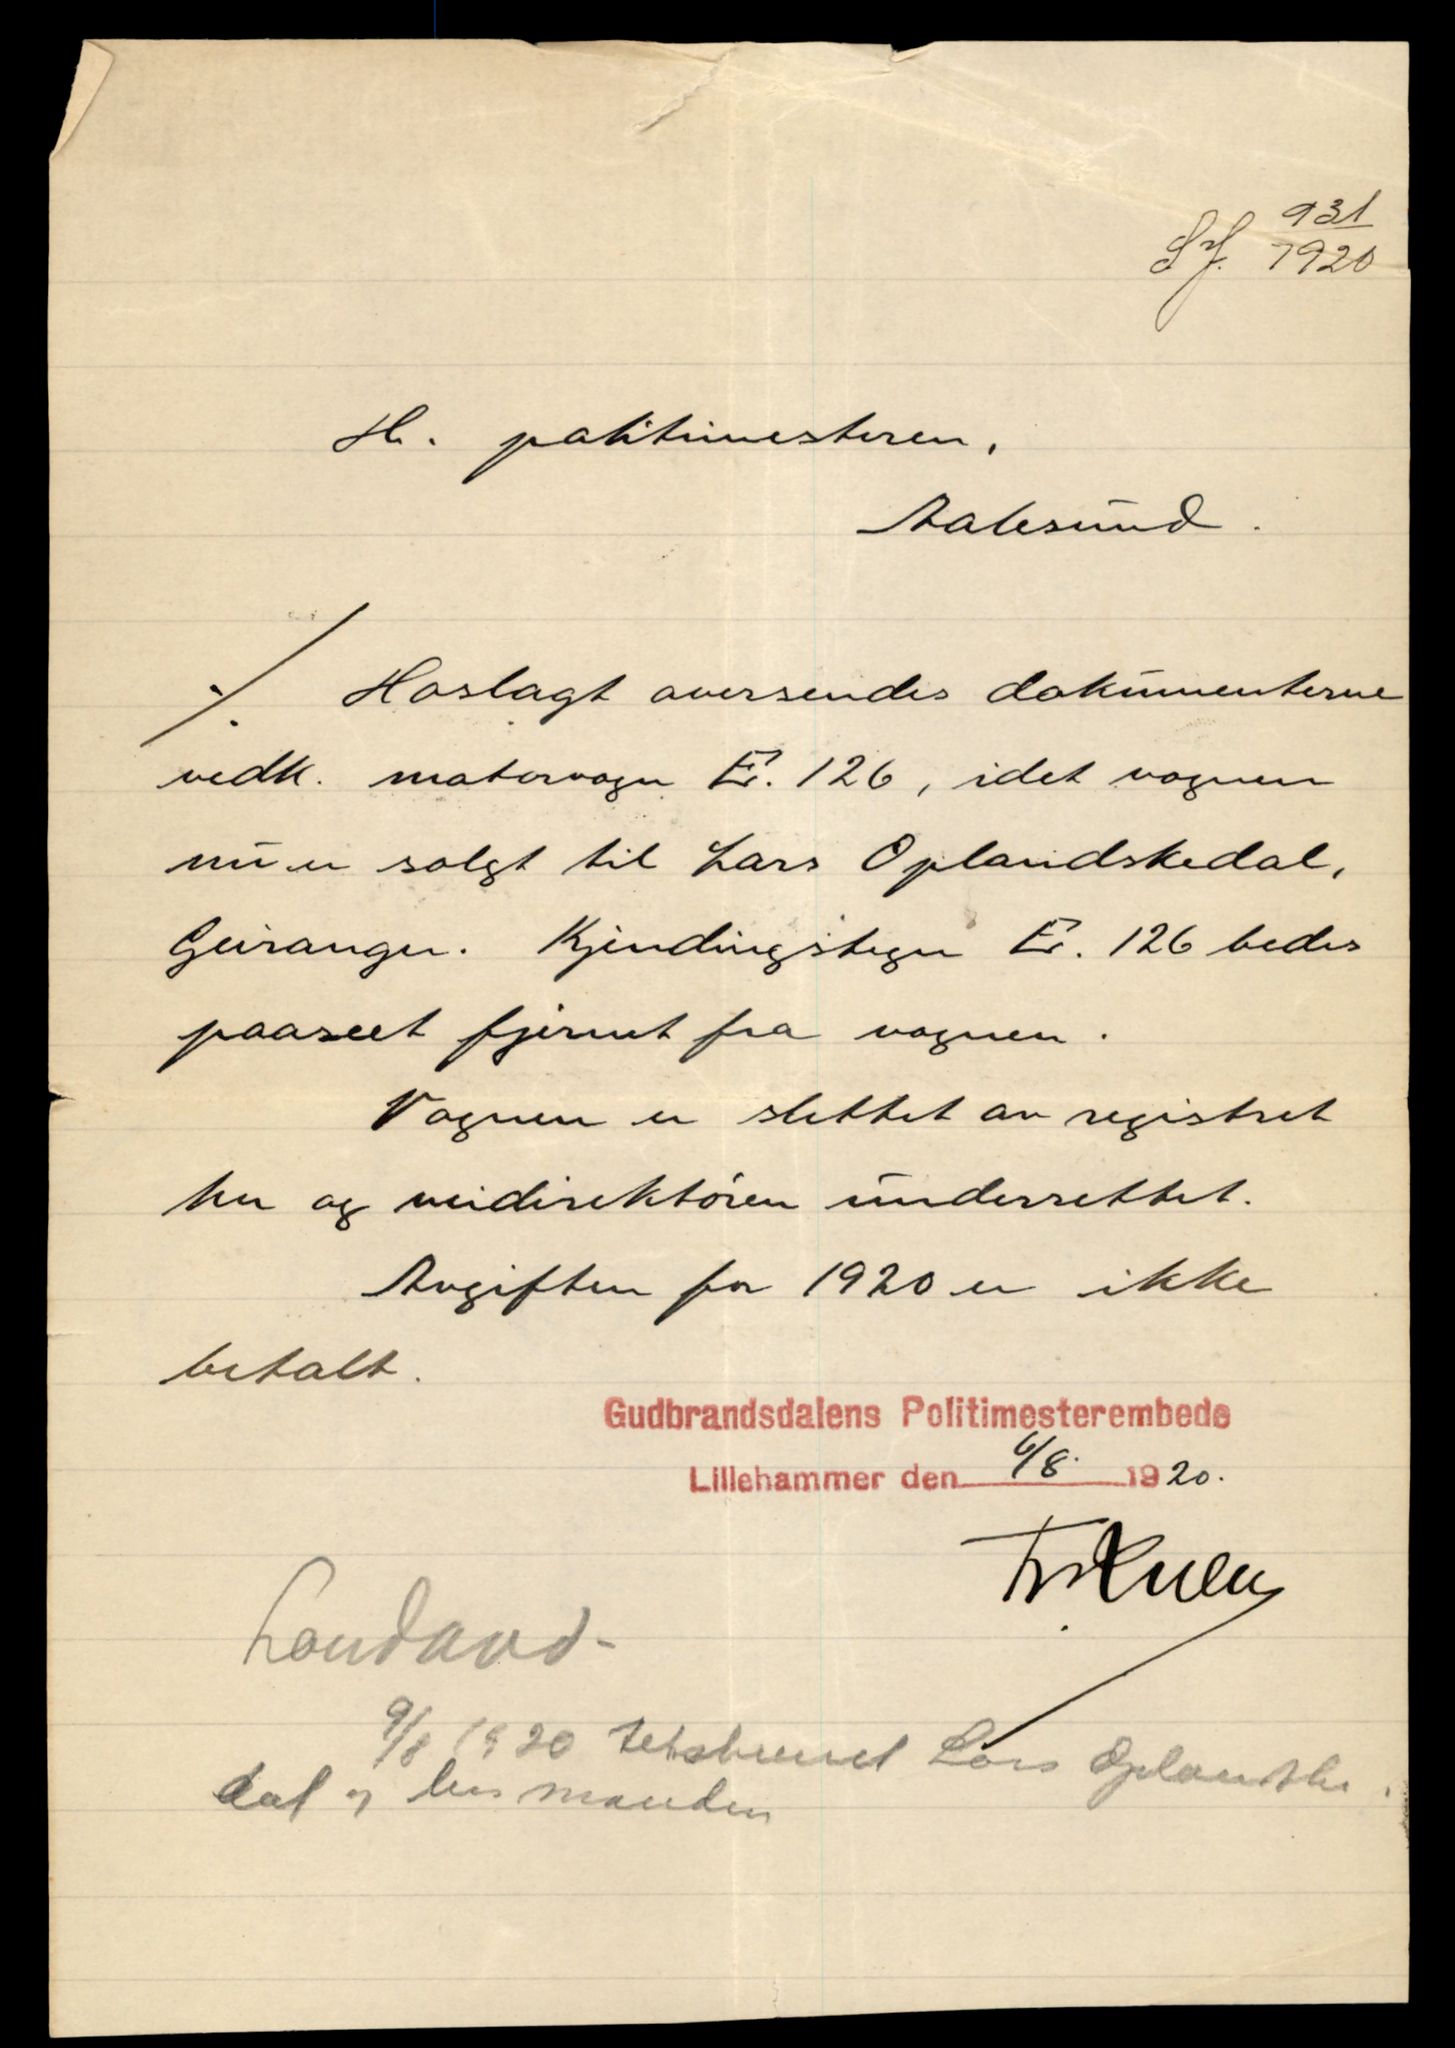 931
1920
H. politimesteren,
Aalesund.
Hoslagt oversendes dokumenterne
vedk. motorvogn E. 126, idet vognen
nu er solgt til Lars Oplandskedal,
Geiranger. Kjendingstegn E. 126 bedes
paaseet fjernet fra vognen.
Vognen er slettet av registret
her og veidirektören underrettet.
Avgiften for 1920 er ikke
betalt.
Gudbrandsdalens Politimesterembede
Lillehammer den 6/8. 1920.
9/8 1920 Lars Oplandske
dal og